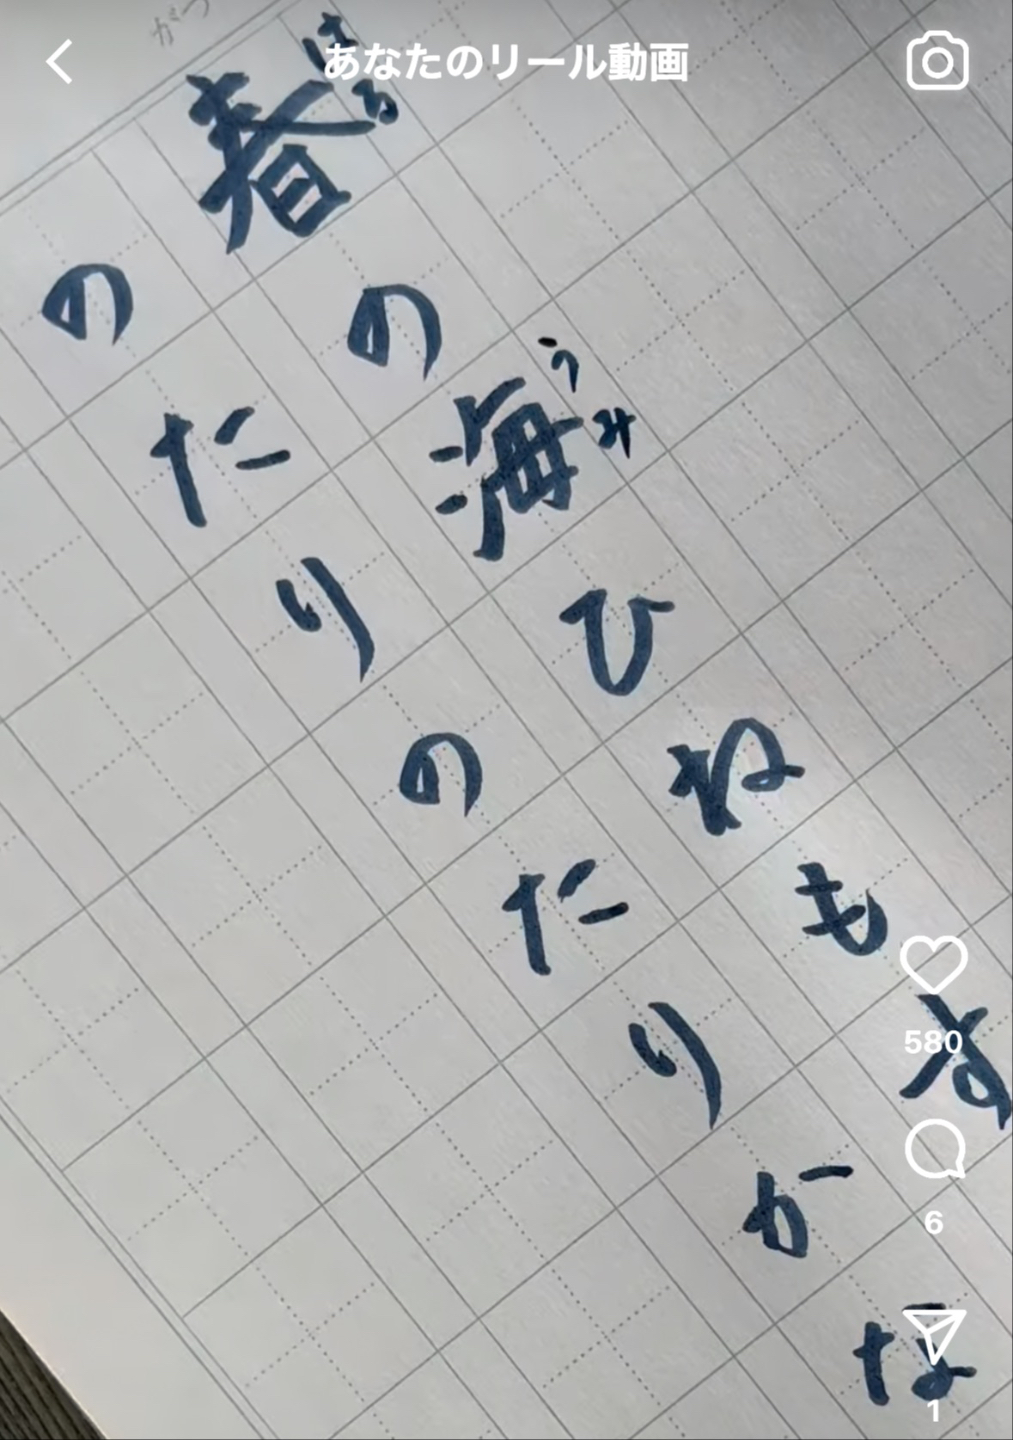 あなたのリール動画
がつ
春の海ひねもす
はる
うみ
のたりのたりかな
580
6
1